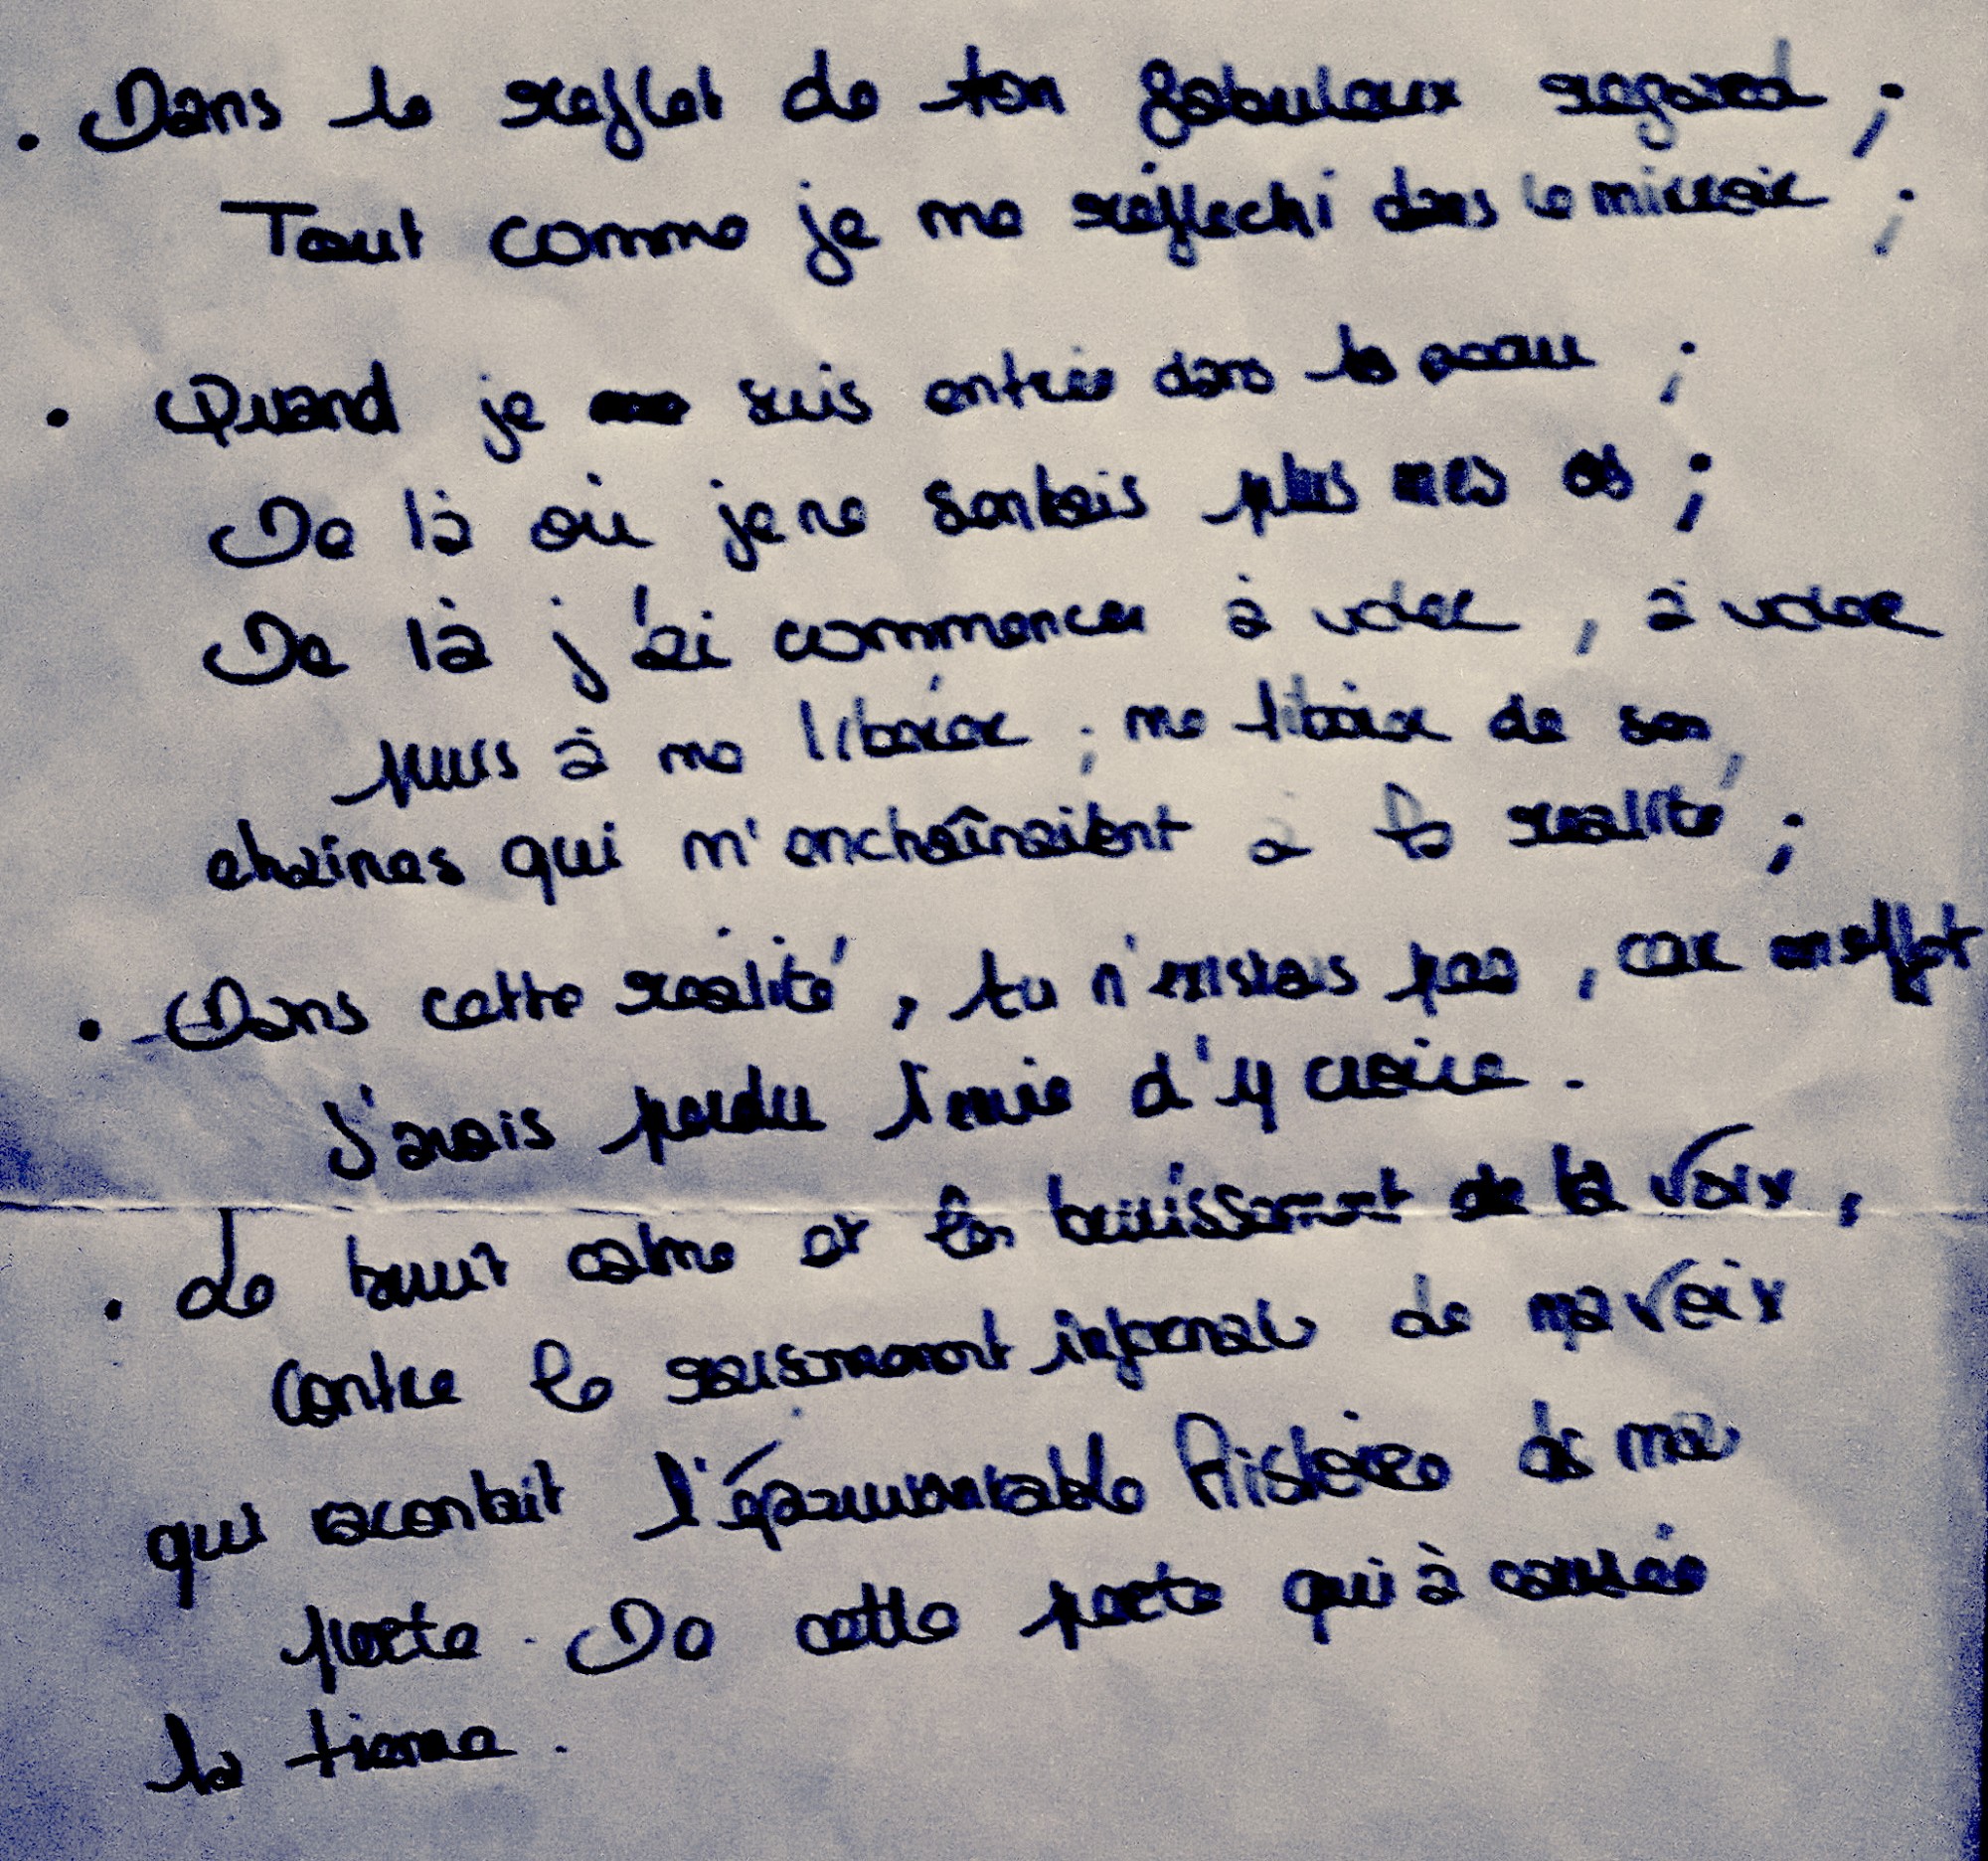 . Dans le reflet de ton fabuleux regard ;
Tout comme je me réflechi dans le miroir ;
. Quand je suis entrée dans la peau ;
De là où je ne sentais plus mes os ;
De là j'ai commencer à voler , à voler
puis à me libérer ; me libérer de son,
chaines qui m'enchaînaient à la realité ;
. Dans cette réalité , tu n'existais pas , car en effet
J'avais perdu l'envie d'y croire .
. Le bruit calme et de la voix ,
contre le infernale de ma voix
qui racontait l'épouvantable histoire de ma
perte . De cette perte qui à causée
la tienne .